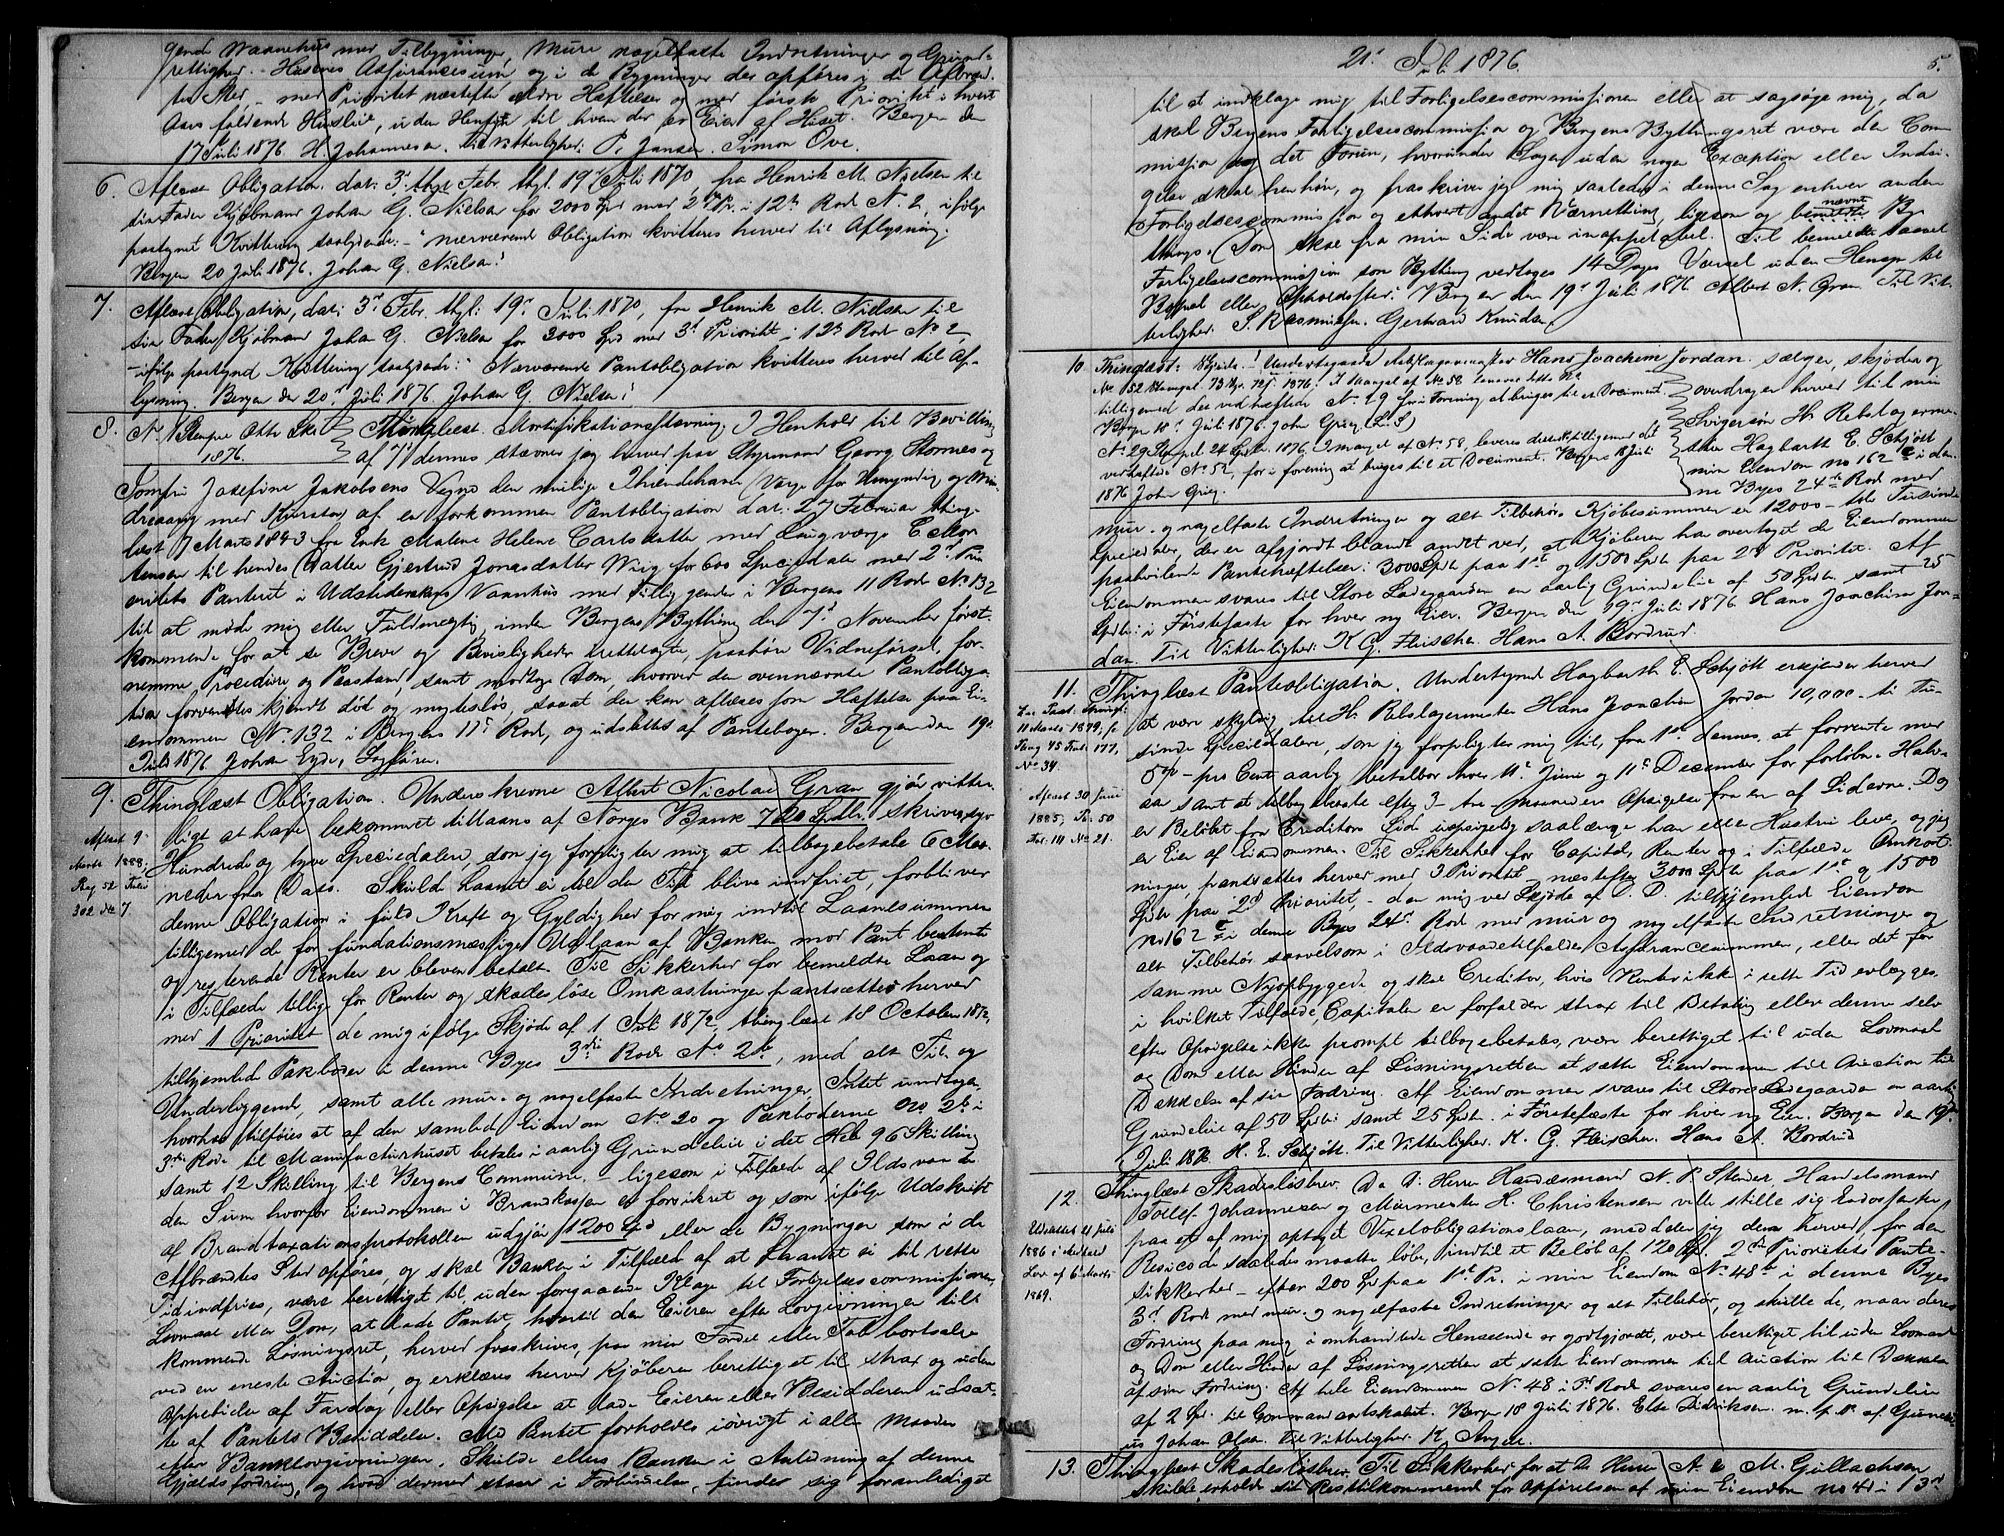 gende Vaanehus med Tilbygninger, Mure nagelfaste Indretninger og Grund-
rettighed. Husenes Assurancesum og i de Bygninger der opføres i de Afbrænd-
tes Sted, med Prioritet næstefter ældre Hæftelser og med første Prioritet i hvert
Aars faldende Husleie, uden Hensyn til hvem der er Eier af Huset. Bergen den
17 Juli 1876. H. Johannesen. Til Vitterlighed: P. Jansen. Simon Ove.
6. Aflæst Obligation dat: 3. thgl. 19 Juli 1870, fra Henrik M. Nielsen til
sin Fader Kjøbmand Johan G. Nielsen for 2000 Spd med 2den Pr. i 12te Rode No. 2, ifølge
paategnet Kvittering saalydende: "nærværende Obligation kvitteres herved til Aflysning.
Bergen 20 Juli 1876. Johan G. Nielsen."
7. Aflæst Obligation, dat: 3de Febr. thgl. 19de Juli 1870, fra Henrik M. Nielsen til
sin Fader Kjøbmand Johan G. Nielsen for 3000 Spd med 3die Prioritet i 12te Rode No 2,
ifølge paategned Kvittering saalydende: "Nærværende Pantobligation kvitteres herved til Af-
lysning. Bergen den 20de Juli 1876. Johan G. Nielsen."
8. No 1 Stempel Otte Skil
1876.
Thinglæst Mortifikationsstævning. I Henhold til Bevilling
af 7de dennes stævner jeg herved paa Styrmand Georg Stornes og
Jomfru Josefine Jakobsens Vegne den mulige Ihændehaver (Værge for Umyndig og Min-
dreaarig med Kurator) af en forkommen Pantobligation dat. 27 Februar thing-
læst 7 Marts 1843 fra Enk Malene Helene Carlsdatter med Laugværge E. Mor
tensen til hendes Datter Gjertrud Jonasdatter Wiig for 600 Speciedaler med 2den Pri
oritets Panteret i Udstederskens Vaanhus med Tilliggender i Bergens 11 Rode No 132
til at møde mig eller Fuldmægtig inden Bergens Bything den 7de November først-
kommende for at se Breve og Bevisligheder irettelagte, paahøre Vidneførsel, for-
nemme Procedure og Paastand, samt modtage Dom, hvorved den ovennævnte Pantobliga
tion forventes kjendt død og magtesløs, saaat den kan aflæses som Hæftelse paa Ei-
endommen No. 132 i Bergens 11te Rode, og udslettes af Pantebogen. Bergen den 19de
Juli 1876 Johan Eyde, Sagfører.
9. Thinglæst Obligation. Underskrevne Albert Nicolai Gran gjør vitter-
Aflæst 9
Marts 1888,
Reg 52 Folio
302 No 7.
ligt at have bekommet tillaans af Norges Bank 720 Spdlr. skriver syv
Hundrede og tyve Speciedaler, som jeg forpligter mig at tilbagebetale 6 Maa-
neder fra Dato. Skulde Laanet ei til den Tid blive indfriet, forbliver
denne Obligation i fuld Kraft og Gyldighed for mig indtil Laanesummen
tilligemed de for fundationsmæssige Udlaan af Banken mod Pant bestemte
og resterende Renter er bleven betalt. Til Sikkerhed for bemeldte Laan og
i Tilfælde tillige for Renter og skadesløse Omkostninger pantsættes herved
med 1 Prioritet de mig ifølge Skjøde af 1 Juli 1872, thinglæst 18 October 1872,
tilhjemlede Pakboder i denne Byes 3die Rode No 2b, med alt Til- og
Underliggende, samt alle mur- og nagelfaste Indretninger, Intet undtagen,
hvorhos tilføies at af den samlede Eiendom No 20 og Pakboderne No 2b i
3die Rode til Manufacturhuset betales i aarlig Grundeleie i det Hele 96 Skilling
samt 12 Skilling til Bergens Commune, - ligesom i Tilfælde af Ildsvaade
den Sum hvorfor Eiendommen i Brandkassen er forsikret og som ifølge Udskrift
af Brandtaxationsprotokollen udgjør 1200 Spd eller de Bygninger som i de
Afbrændtes Sted opføres, og skal Banken i Tilfælde af at Laanet ei til rette
Tid indfries, være berettiget til uden foregaaende Klage til Forligelsescommissionen,
Lovmaal eller Dom, at lade Pantet, hvortil den Eieren efter Lovgivningen tilk
kommende Løsningsret, herved fraskrives, paa min Fordel eller Tab bortsælge
ved en eneste Auction, og erklæres herved Kjøberen berettiget til strax og uden
oppebielse af Fardag eller Opsigelse at lade Eieren eller Besidderen udsæt-
te af Pantets Besiddelse. Med Pantet forholdes iøvrigt i alle Maader
efter Banklovgivningen. Skulde ellers Banken i Anledning af denne
Gjældsfordring, og hvad dermed staar i Forbindelse, finder sig foranlediget
21de Juli 1876.
5.
til at indklage mig til Forligelsescommissionen eller at sagsøge mig, da
skal Bergens Forligelsescommission og Bergens Bythingsret være den Com
mission og det Forum, hvorunder Sagen uden nogen Exception eller Indsi-
gelse skal henhøre, og fraskriver jeg mig saaledes i denne Sag enhver anden
Forligelsescommission og ethvert andet Værnething, ligesom og nævnte By-
things Dom skal fra min Side være inappellabel. Til bemeldte saavel
Forligelsescommission som Bything vedtages 14 Dages Varsel uden Hensyn til
Bopæl eller Opholdsted. Bergen den 19de Juli 1876 Albert N. Gran. Til Vit-
terlighed: S. Rasmussen. Gerhard Knudsen.
10. Thinglæst: Skjøde. Undertegnede Rebslagermester Hans Joachim Jordan sælger, skjøder og
No 52 Stempel 73 Spd. 72 s. 1876. I Mangel af No 58 leveres dette No
tilligemed det vedhæftede No 29 for i Forening at bruges til et Document.
Bergen 18de Juli 1876. John Grieg (L.S.)
No 29 Stempel 24 Spdlr. 1876. I mangel af No 58, leveres dette tilligemed det
vedhæftede No 52, for i forening at bruges til et Document. Bergen 18 Juli
1876 John Grieg.
overdrager herved til min
Svigersøn Hr. Rebslagerme-
ster Hagbarth E. Schjött
min Eiendom no 162 c i den-
ne Byes 24de Rode med
mur- og nagelfaste Indretninger og alt Tilbehør. Kjøbesummen er 12000 - tolv Tusinde
Speciedaler, der er afgjordt blandt andet ved, at Kjøberen har overtaget de Eiendommen
paahvilende Pantehæftelser: 3000 Spdlr paa 1ste og 1500 Spdlr paa 2den Prioritet. Af
Eiendommen svares til Store Ladegaarden en aarlig Grundeleie af 50 Spdlr samt 25
Spdlr i Førstefæste for hver ny Eier. Bergen den 19de Juli 1876 Hans Joachim Jor-
dan. Til Vitterlighed: K. G. Fleischer. Hans A. Bordrud.
11. Thinglæst Pantobligation. Undertegnede Hagbarth E. Schjött erkjender herved
11 Marts 1879,
Reg 45 Fol. 177,
No 34.
Aflæst 30 Juni
1885, Fr. 50
Fol. 111 No 21.
at være skyldig til Hr. Rebslagermester Hans Joachim Jordan 10,000 - ti Tu-
sinde Speciedaler, som jeg forpligter mig til, fra 1ste dennes, at forrente med
5% - pro Cent aarlig betalbar hver 11te Juni og 11te December for forløbne Halv-
aar samt at tilbagebetale efter 3 - tre - Maaneders Opsigelse fra en af Siderne. Dog
er Beløbet fra Creditors Side uopsigelig saalænge han eller Hustru lever, og jeg
er Eier af Eiendommen. Til Sikkerhed for Capital, Renter og i Tilfælde Omkost-
ninger, pantsættes herved med 3 Prioritet næstefter 3000 Spdlr paa 1ste og 1500
Spdlr paa 2den Prioritet, den mig ved Skjøde af D. D. tilhjemlede Eiendom
No 162 c i denne Byes 24de Rode med mur og nagelfaste Indretninger og
alt Tilbehør saavelsom i Ildsvaadetilfælde Assurancesummen, eller det for
samme Nyopbyggede, og skal Creditor, hvis Renter ikke i rette Tid erlægges,
i hvilket Tilfælde Capitalen er forfalden strax til Betaling eller denne selv
efter Opsigelse ikke prompt tilbagebetales, være berettiget til uden Lovmaal
og Dom eller Hinder af Løsningsretten at sætte Eiendommen til Auction til
Dækkelse af sin Fordring. Af Eiendommen svares til Store Ladegaarden en aarlig
Grundeleie af 50 Spdlr samt 25 Spdlr. i Førstefæste for hver ny Eier. Bergen den 19de
Juli 1876 H. E. Schjött. Til Vitterlighed. K. G. Fleischer. Hans A. Bordrud
12. Thinglæst Skadesløsbrev. Da D'Herrer Handelsmand N. P. Stender, Handelsmand
Udslettet 21 Juli
1886 i Medhold
Lov af 6te Marts
1869.
Tollef Johannesen og Murmester H. Christensen ville stille sig Endossenter
paa et af mig optaget Vexelobligationslaan, meddeler jeg dem herved, for den
Resico de saaledes maatte løbe, indtil et Beløb af 120 Spd. 2den Prioritets Pante-
sikkerhed - efter 200 Spd paa 1ste Pr. i min Eiendom No. 48 i denne Byes
3die Rode med mur- og nagelfaste Indretninger og alt Tilbehør, og skulle de, naar deres
Fordring paa mig i omhandlede Henseende er godtgjordt, være berettiget til uden Lovmaal
og Dom eller Hinder af Løsningsretten at sætte Eiendommen til Auction til Dækkelse
af sin Fordring. Af hele Eiendommen No. 48 i 3die Rode svares en aarlig Grundeleie
af 2 Spd. til Commandantskabet. Bergen 18 Juli 1876. Else Didriksen m. f. P. af
Johan Olsen. Til Vitterlighed
13. Thinglæst Skadesløsbrev. Til Sikkerhed for at De Herrer A. & M. Gullachsen
skulle erholde sit Resttilkommende for Opførelsen af min Eiendom no 41 i 13de